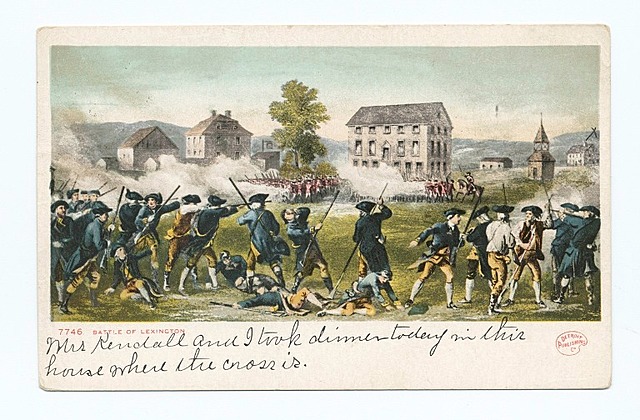 7746 BATTLE OF LEXINGTON
Mrs Kendall and I took dinner today in this
house where the cross is.
DETROIT
PUBLISHING
Co